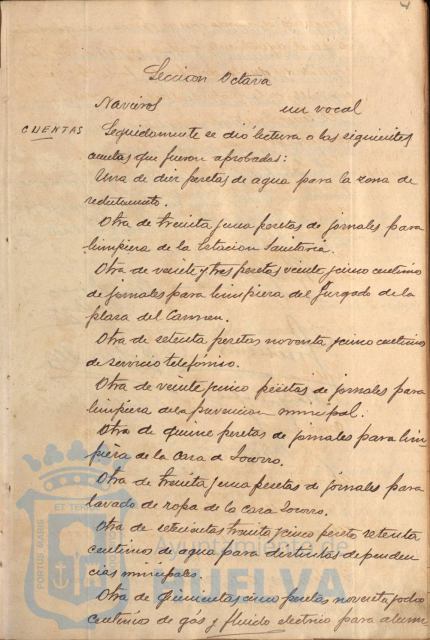 Seccion Octava
Navieros un vocal
CUENTAS
Seguidamente se dió lectura a las siguientes
cuentas que fueron aprobadas:
Una de diez pesetas de agua para la zona de
reclutamto.
Otra de treinta y una pesetas de jornales para
limpieza de la Estacion Sanitaria.
Otra de veinte y tres pesetas veinte y cinco centimos
de jornales para limpieza del Juzgado de la
plaza del Carmen.
Otra de setenta pesetas noventa y cinco centimos
de servicio telefónico.
Otra de veinte y cinco pesetas de jornales para
limpieza de la prevencion municipal.
Otra de quince pesetas de jornales para lim-
pieza de la Casa de Socorro.
Otra de treinta y una pesetas de jornales para
lavado de ropa de la casa Socorro.
Otra de setecientas treinta y cinco pesetas setenta
centimos de agua para distintas dependen-
cias municipales.
Otra de quinientas cinco pesetas noventa y ocho
centimos de gás y fluido electrico para alum
PORTUS MARIS ET TERR
Ayuntamiento de
HUELVA